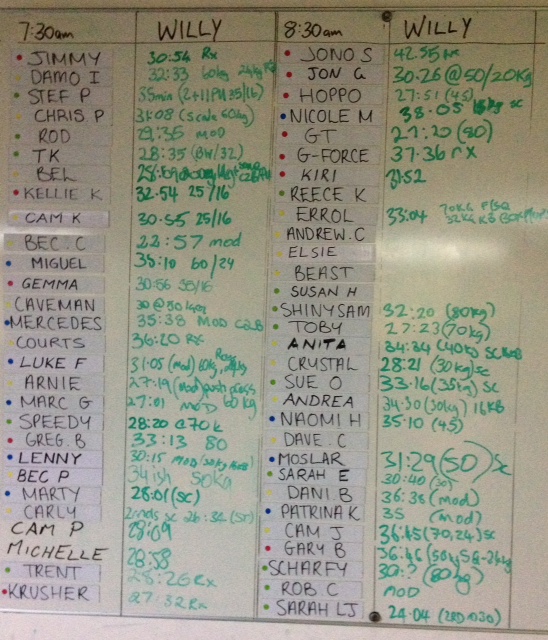 7:30am WILLY
JIMMY 30:54 Rx
DAMO I 32:33 60kg
STEF P 35min (2+11PM 35/16)
CHRIS P 31:08 (Scale 60kg)
ROD 29:35 MOD
TK 28:35 (BW/32)
BEL
KELLIE K 32:54 25/16
CAM K 30:55 25/16
BEC. C 22:57 mod
MIGUEL 35:10 60/24
GEMMA 30:56 35/16
CAVEMAN 30 @ 50kg
MERCEDES 35:38 MOD C2B
COURTS 36:20 Rx
LUKE F 31:05 (mod) 60kg
ARNIE 27:19 (mod) push press
MARC G 27:01 MOD 60kg
SPEEDY 28:20 @70k
GREG. B 33:13 80
LENNY 30:15 MOD
BEC P 34ish 50kg
MARTY 28:01 (SC)
CARLY 2rnds sc 26:34 (ST)
CAM P 28:09
MICHELLE 28:58
TRENT 28:26 Rx
KRUSHER 27:32 Rx
8:30am WILLY
JONO S 42:55 Rx
JON G 30:26 @ 50/20kg
HOPPO 27:51 (45)
NICOLE M 38:05 16kg sc
GT 27:20 (80)
G-FORCE 37:36 rx
KIRI 31:52
REECE K
ERROL 33:04 70KG F/SQ
ANDREW.C
ELSIE
BEAST
SUSAN H
SHINYSAM 32:20 (80kg)
TOBY 27:23 (70kg)
ANITA 34:34 (40KG SC
CRYSTAL 28:21 (30kg) sc
SUE O 33:16 (35kg) sc
ANDREA 34:30 (30kg) 16KB
NAOMI H 35:10 (45)
DAVE. C
MOSLAR 31:29 (50) Sc
SARAH E 30:40 (30)
DANI. B 36:38 (mod)
PATRINA K 35 (mod)
CAM J 36:45 (70,24) sc
GARY B 36:46
SCHARFY 30:? (80kg)
ROB C MOD
SARAH LJ 24:04